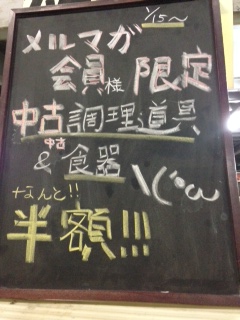 1/15〜
メルマガ
会員様 限定
中古調理道具
& 中古食器
なんと!!
半額!!!
\(・ω